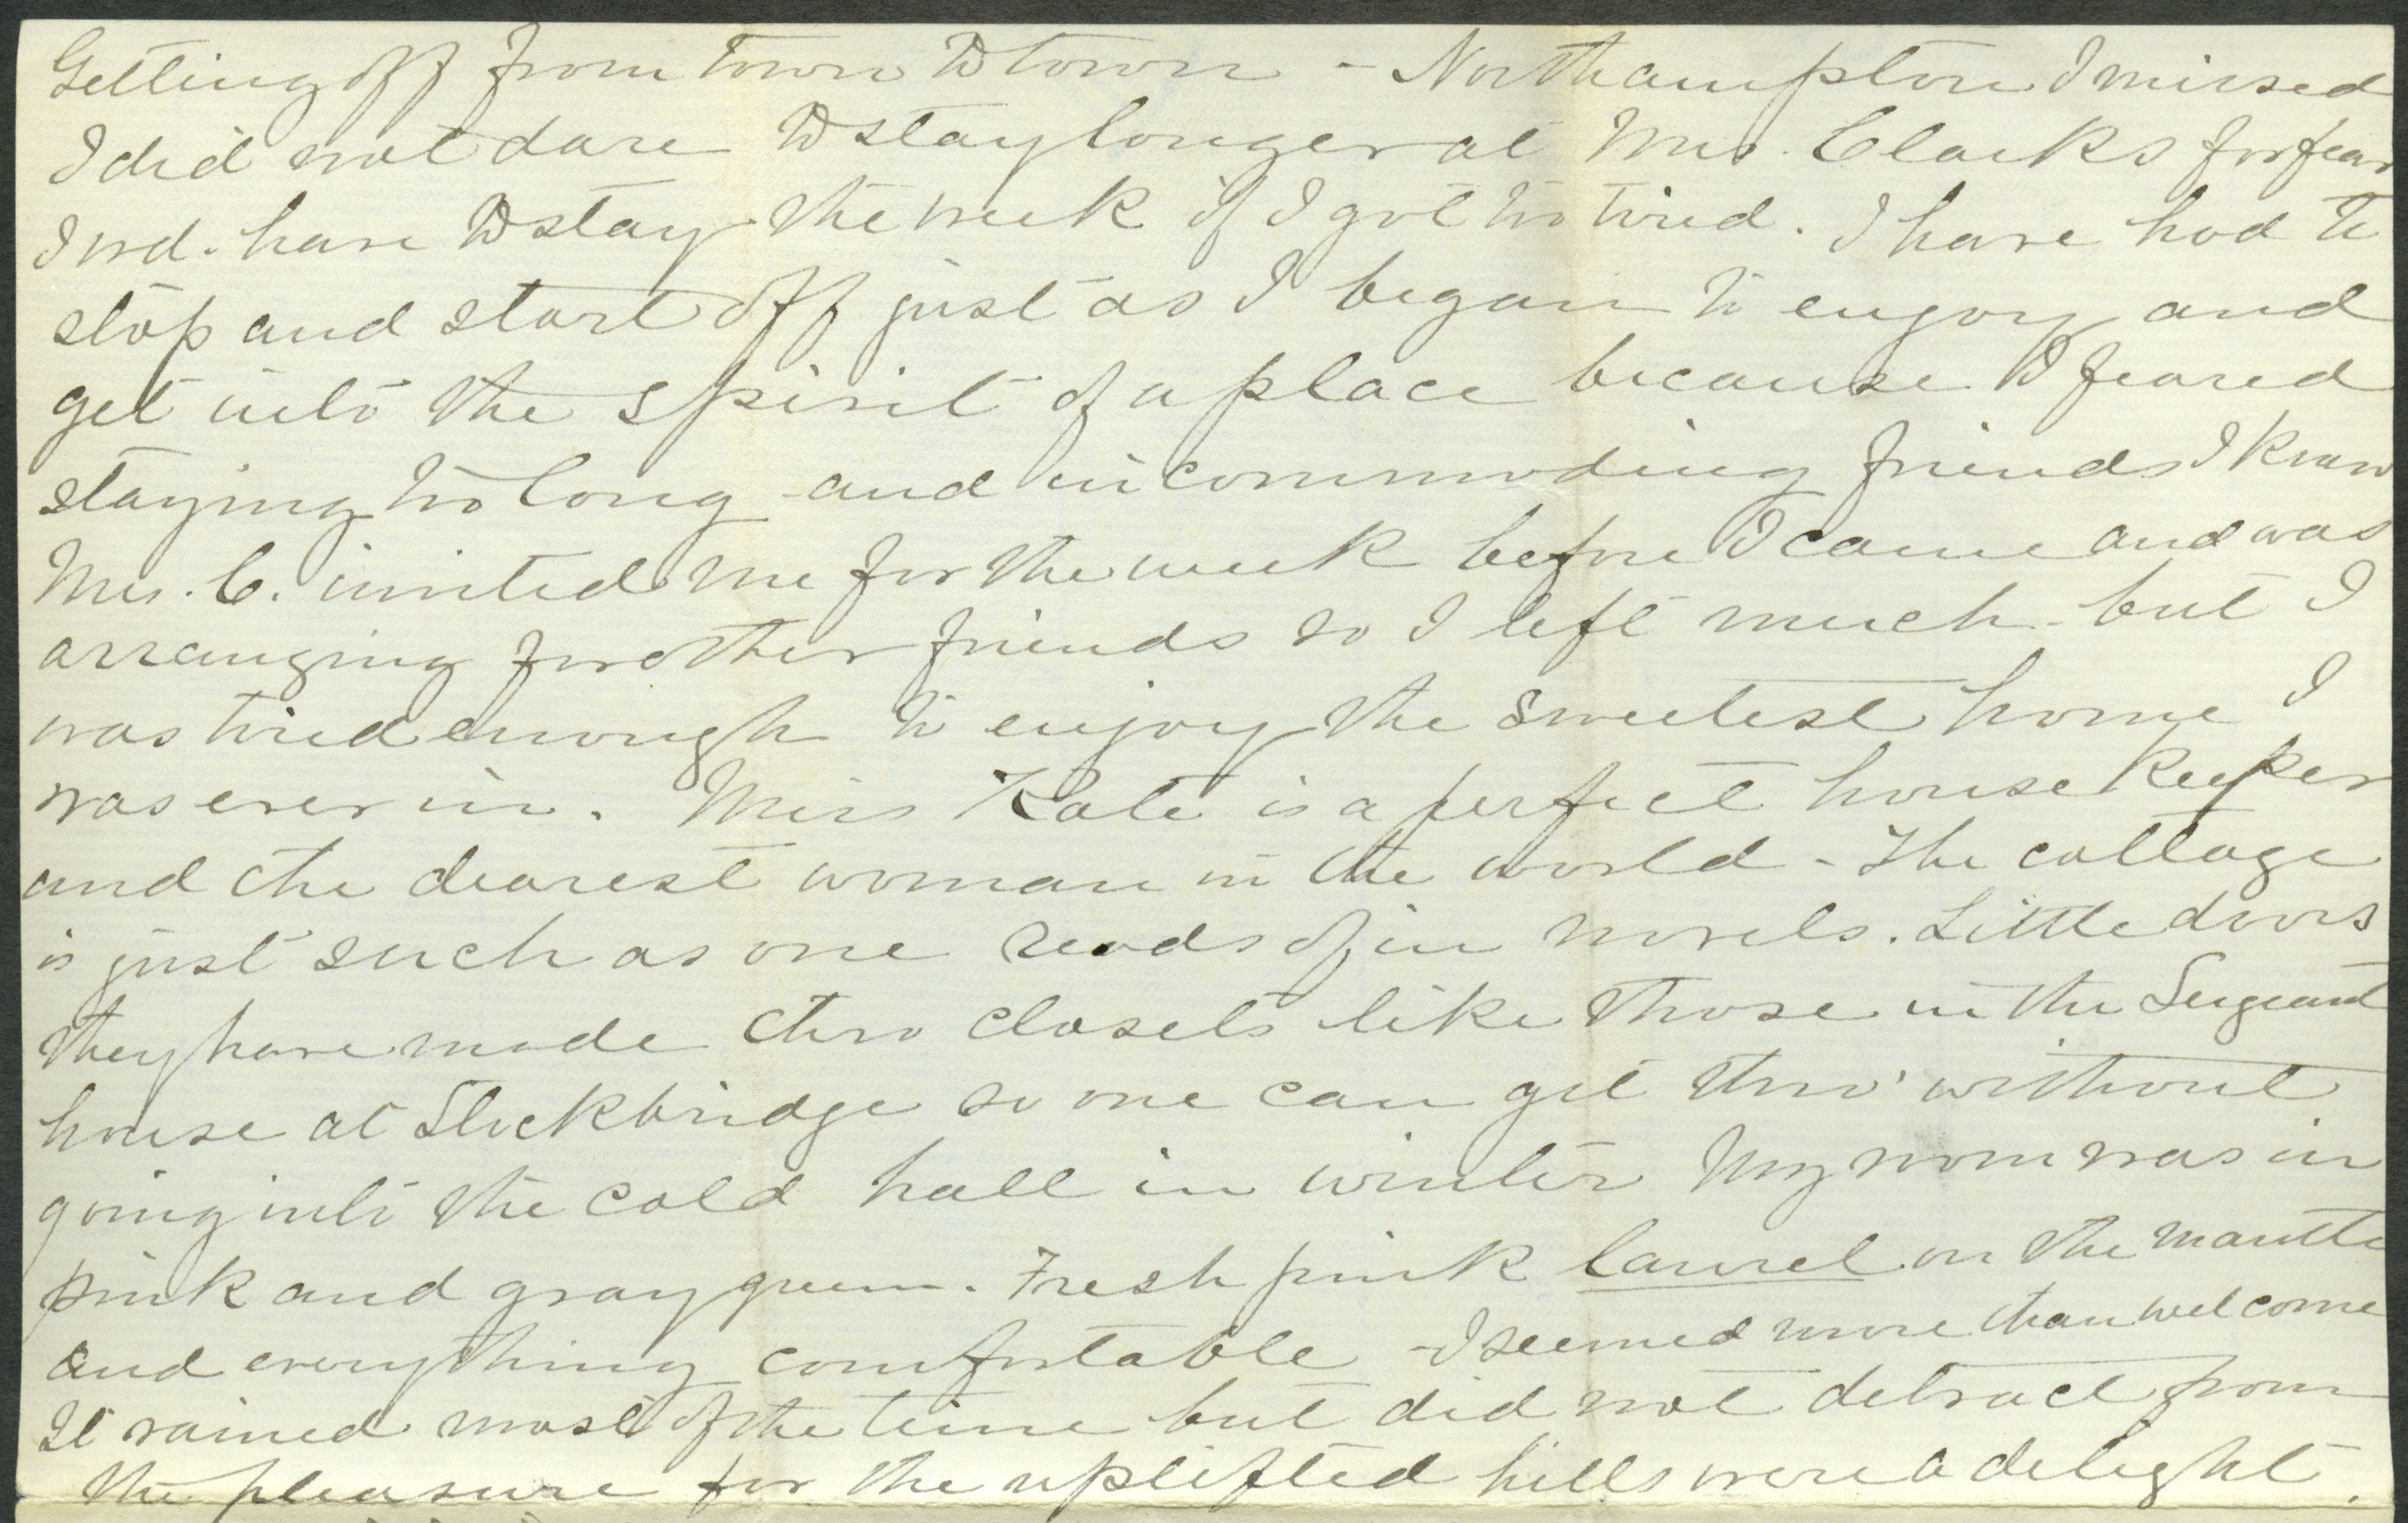 Getting off from town to town - Northampton I missed
I did not dare to stay longer at Mrs. Clarks for fear
I wd. have to stay the week if I got too tired. I have had to
stop and start off just as I began to enjoy and
get into the spirit of a place because I feared
staying too long and incommoding friends I knew
Mrs. C. invited me for the week before I came and was
arranging for other friends so I left much - but I
was tired enough to enjoy the sweetest home I
was ever in. Miss Kate is a perfect house keeper
and the dearest woman in the world - The cottage
is just such as one reads of in novels. Little doors
they have made thro closets like those in the Sergeant
house at Stockbridge so one can get thro' without
going into the cold hall in winter My room was in
pink and gray green. Fresh pink laurel on the mantle
and everything comfortable - I seemed more than welcome
It rained most of the time but did not detract from
the pleasure for the uplifted hills were a delight.